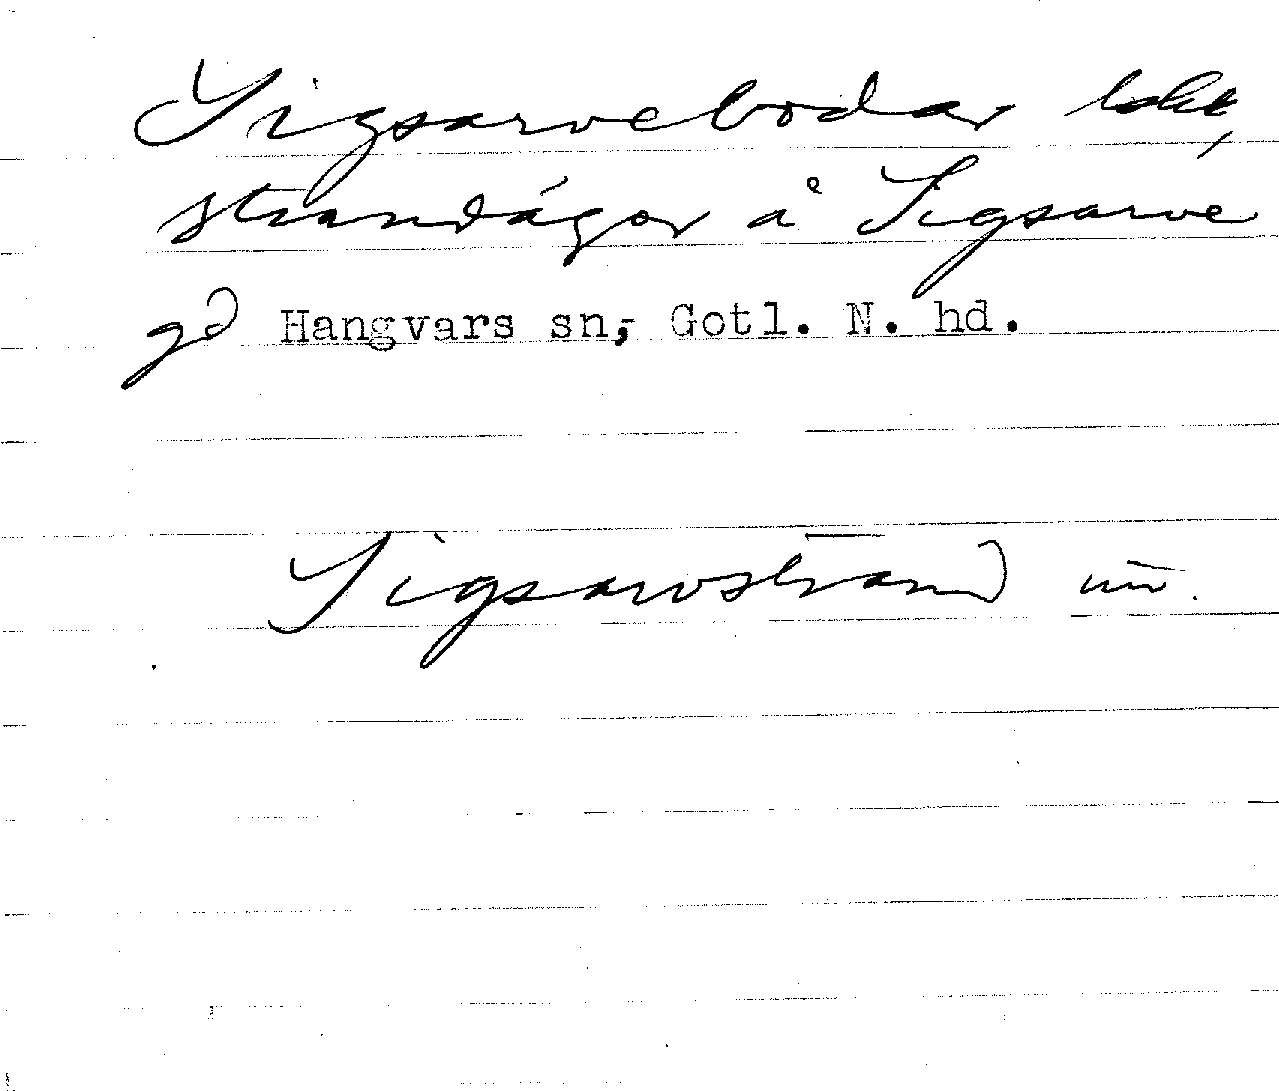 Sigsarvebodar lokt,
strandägor å Sigsarve
gd Hangvars sn, Gotl. N. hd.
Sigsarvstrand